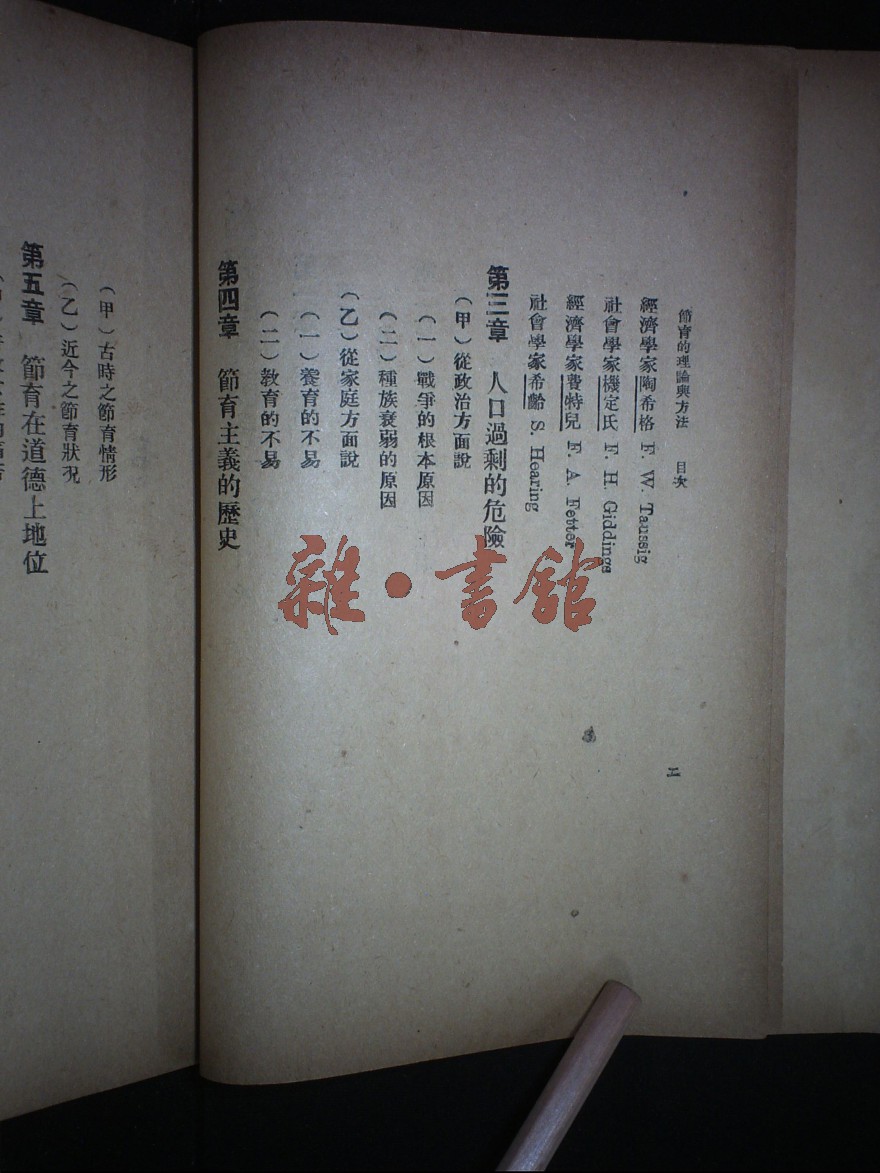 節育的理論與方法 目次
二
經濟學家陶希格 F. W. Taussig
社會學家機定氏 F. H. Giddings
經濟學家費特兒 F. A. Fetter
社會學家希齡 S. Hearing
第三章 人口過剩的危險
(甲)從政治方面說
(一)戰爭的根本原因
(二)種族衰弱的原因
(乙)從家庭方面說
(一)養育的不易
(二)教育的不易
第四章 節育主義的歷史
(甲)古時之節育情形
(乙)近今之節育狀况
第五章 節育在道德上地位
雜·書館